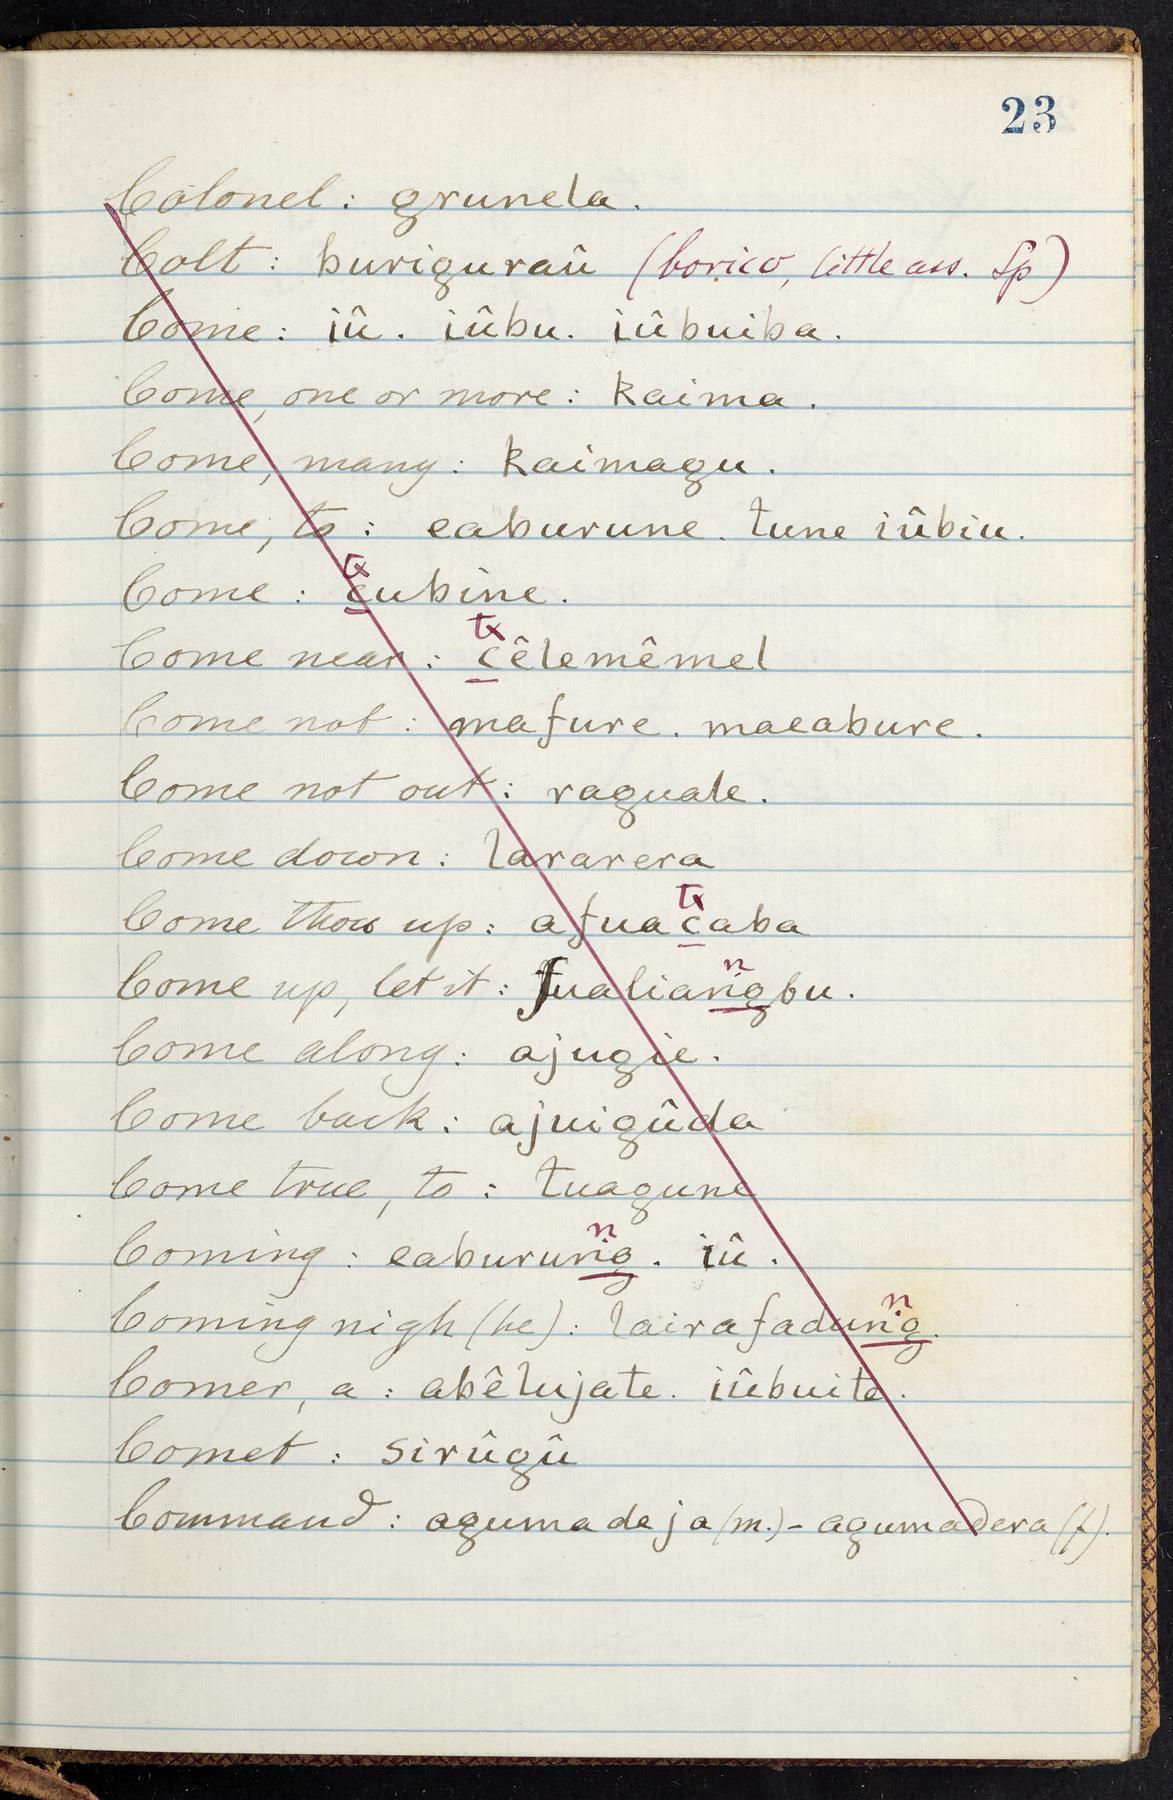 23
Colonel : grunela .
Colt : buriguraû (borico, little ass. Sp)
Come : iû . iûbu . iûbuiba .
Come, one or more : kaima .
Come, many : kaimagu .
Come, to : eaburune . tune iûbiu .
tx
Come : cubine .
tx
Come near : cêlemêmel
Come not : mafure . maeabure .
Come not out : raguale .
Come down : lararera
tx
Come thou up : afuacaba
n
Come up, let it : fualiangbu .
Come along : ajugie .
Come back : ajuigûda
Come true, to : tuagune
n
Coming : eaburung . iû .
n
Coming nigh (he) : lairafadung .
Comer, a : abêlujate . iûbuite .
Comet : sirûgû
Command : agumadeja (m.) - agumadera (f).